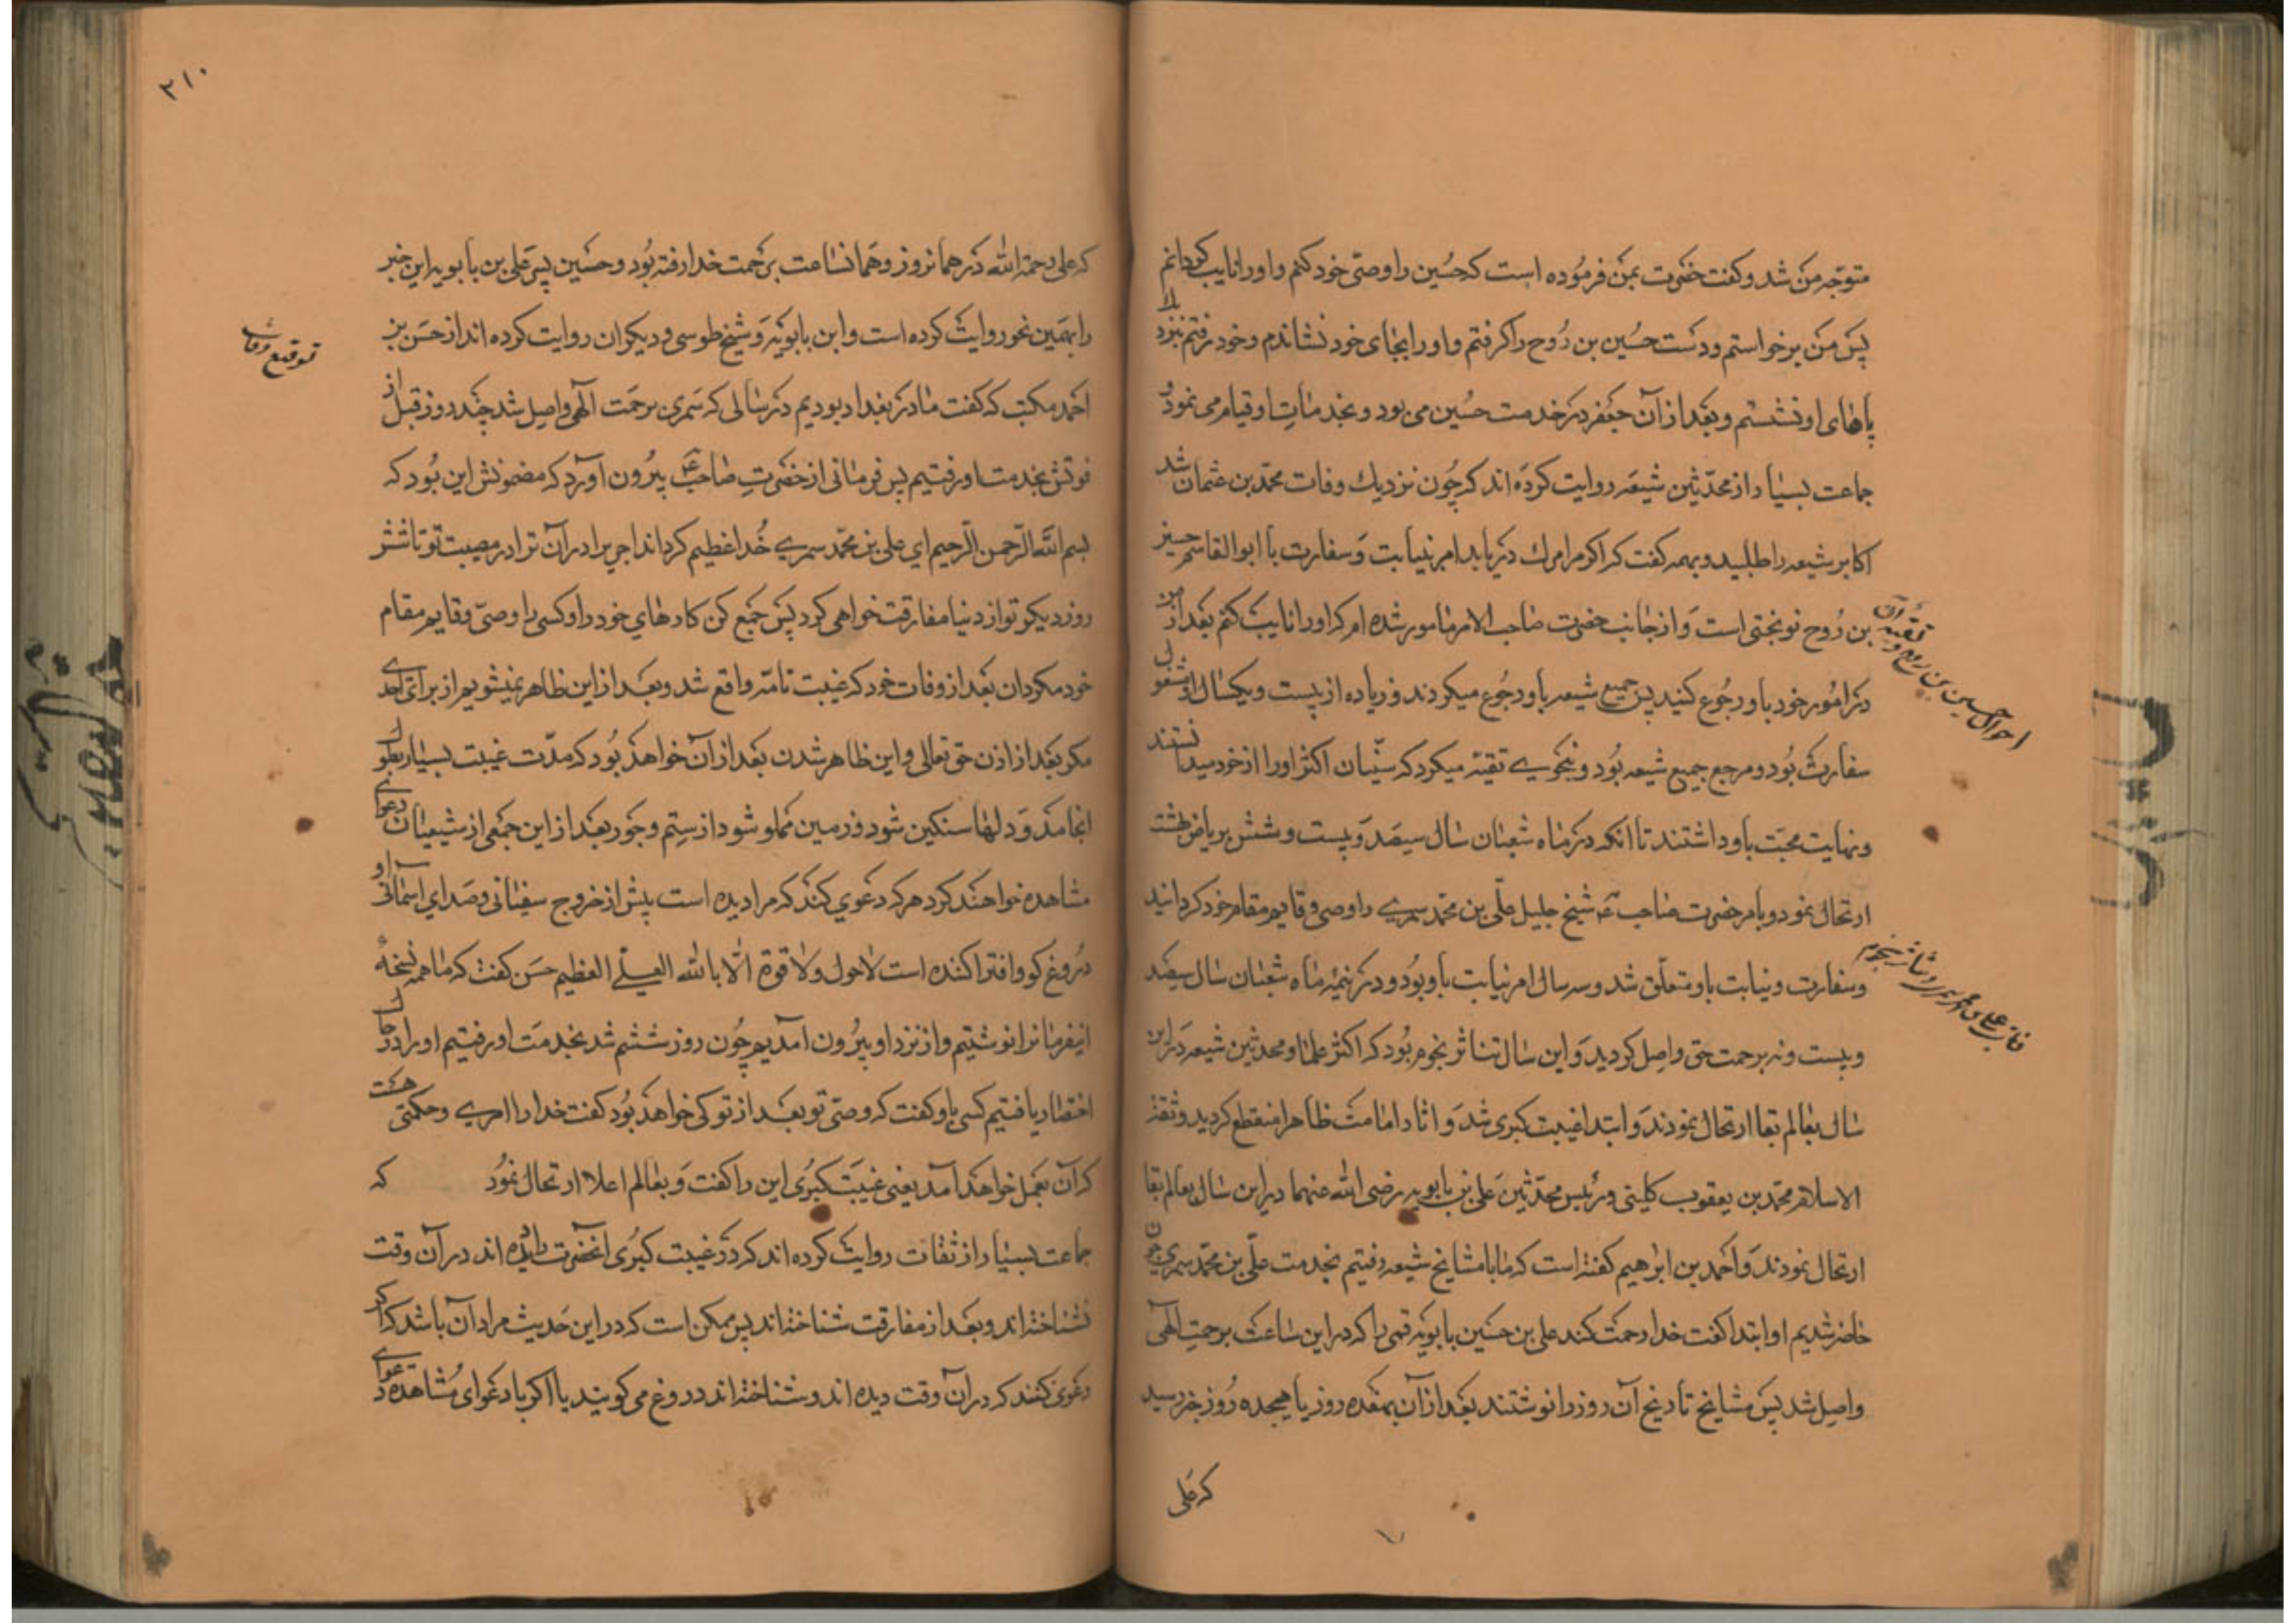 متوجه من شد و کفت حضرت بمن فرموده است که حسین را وصی خود کنم و او را نایب کردانم
پس من برخواستم و دست حسین بن روح را کرفتم و او را بجای خود نشاندم و خود رفتم نزدیك
پاهای او نشستم و بعد از آن جعفر در خدمت حسین می بود و بخدمات او قیام می نمود و
جماعت بسیار از محدثین شیعه روایت کرده اند که چون نزدیك وفات محمد بن عثمان شد
اکابر شیعه را طلبید و بهمه کفت که اکر مرا مرك دریابد امر نیابت و سفارت با ابوالقاسم حسین
بن روح نوبختی است و از جانب حضرت صاحب الامر مامور شده ام که او را نایب کنم بعد از من
در امور خود باو رجوع کنید پس جمیع شیعه باو رجوع میکردند و زیاده از بیست و یکسال او مشغول
سفارت بود و مرجع جمیع شیعه بود و بنحوی تقیه میکرد که سنیان اکثر او را از خود میدانستند
و نهایت محبت باو داشتند تا انکه در ماه شعبان سال سیصد و بیست و شش بریاض بهشت
ارتحال نمود و بامر حضرت صاحب ع شیخ جلیل علی بن محمد سمری را وصی و قایم مقام خود کردانید
و سفارت و نیابت باو متعلق شد و سه سال امر نیابت باو بود و در نیمه ماه شعبان سال سیصد
و بیست و نه برحمت حق واصل کردید و این سال تناثر نجوم بود که اکثر علما و محدثین شیعه در این
سال بعالم بقا ارتحال نمودند و ابتدا غیبت کبری شد و اثار امامت ظاهرا منقطع کردید و ثقة
الاسلام محمد بن یعقوب کلینی و رئیس محدثین علی بن بابویه رضی الله عنهما در این سال بعالم بقا
ارتحال نمودند و احمد بن ابراهیم کفته است که ما با مشایخ شیعه رفتیم بخدمت علی بن محمد سمری چون
حاضر شدیم او ابتدا کفت خدا رحمت کند علی بن حسین بابویه قمی را که در این ساعت برحمت الهی
واصل شد پس مشایخ تاریخ آن روز را نوشتند بعد از آن بهفده روز یا هیجده روز خبر رسید
که علی
احوال حسین بن روح و تقیه آن
وفات علی بن محمد سمری و تناثر نجوم
۳۱۰
که علی رحمة الله در همانروز و همانساعت برحمت خدا رفته بود و حسین پسر علی بن بابویه این خبر
را بهمین نحو روایت کرده است و ابن بابویه و شیخ طوسی و دیکران روایت کرده اند از حسن بن
احمد مکتب که کفت ما در بغداد بودیم در سالی که سمری برحمت الهی واصل شد چند روز قبل از
فوتش بخدمت او رفتیم پس فرمانی از حضرت صاحب ع بیرون آورد که مضمونش این بود که
بسم الله الرحمن الرحیم ای علی بن محمد سمری خدا عظیم کرداند اجر برادران ترا در مصیبت تو تا شش
روز دیکر تو از دنیا مفارقت خواهی کرد پس جمع کن کارهای خود را و کسی را وصی و قایم مقام
خود مکردان بعد از وفات خود که غیبت تامه واقع شد و بعد از این ظاهر نمیشویم از برای احدی
مکر بعد از اذن حق تعالی و این ظاهر شدن بعد از آن خواهد بود که مدت غیبت بسیار بطول
انجامد و دلها سنکین شود و زمین مملو شود از ستم و جور بعد از این جمعی از شیعیان دعوای
مشاهده خواهند کرد هرکه دعوی کند که مرا دیده است پیش از خروج سفیانی و صدای آسمانی او
دروغ کو و افترا کننده است لا حول ولا قوة الا بالله العلی العظیم حسن کفت که ما همه نسخهٔ
اینفرمانرا نوشتیم و از نزد او بیرون امدیم چون روز ششم شد بخدمت او رفتیم او را در حال
احتضار یافتیم کسی باو کفت که وصی تو بعد از تو کی خواهد بود کفت خدا را امری و حکمتی هست
که آن بعمل خواهد آمد یعنی غیبت کبری این را کفت و بعالم اعلا ارتحال نمود که
جماعت بسیار از ثقات روایت کرده اند که در غیبت کبری انحضرت را دیده اند در آن وقت
نشناخته اند و بعد از مفارقت شناخته اند پس ممکن است که در این حدیث مراد آن باشد که اکر
دعوی کنند که در ان وقت دیده اند و شناخته اند دروغ می کویند یا اکر با دعوای مشاهده دعوای
توقیع وفات